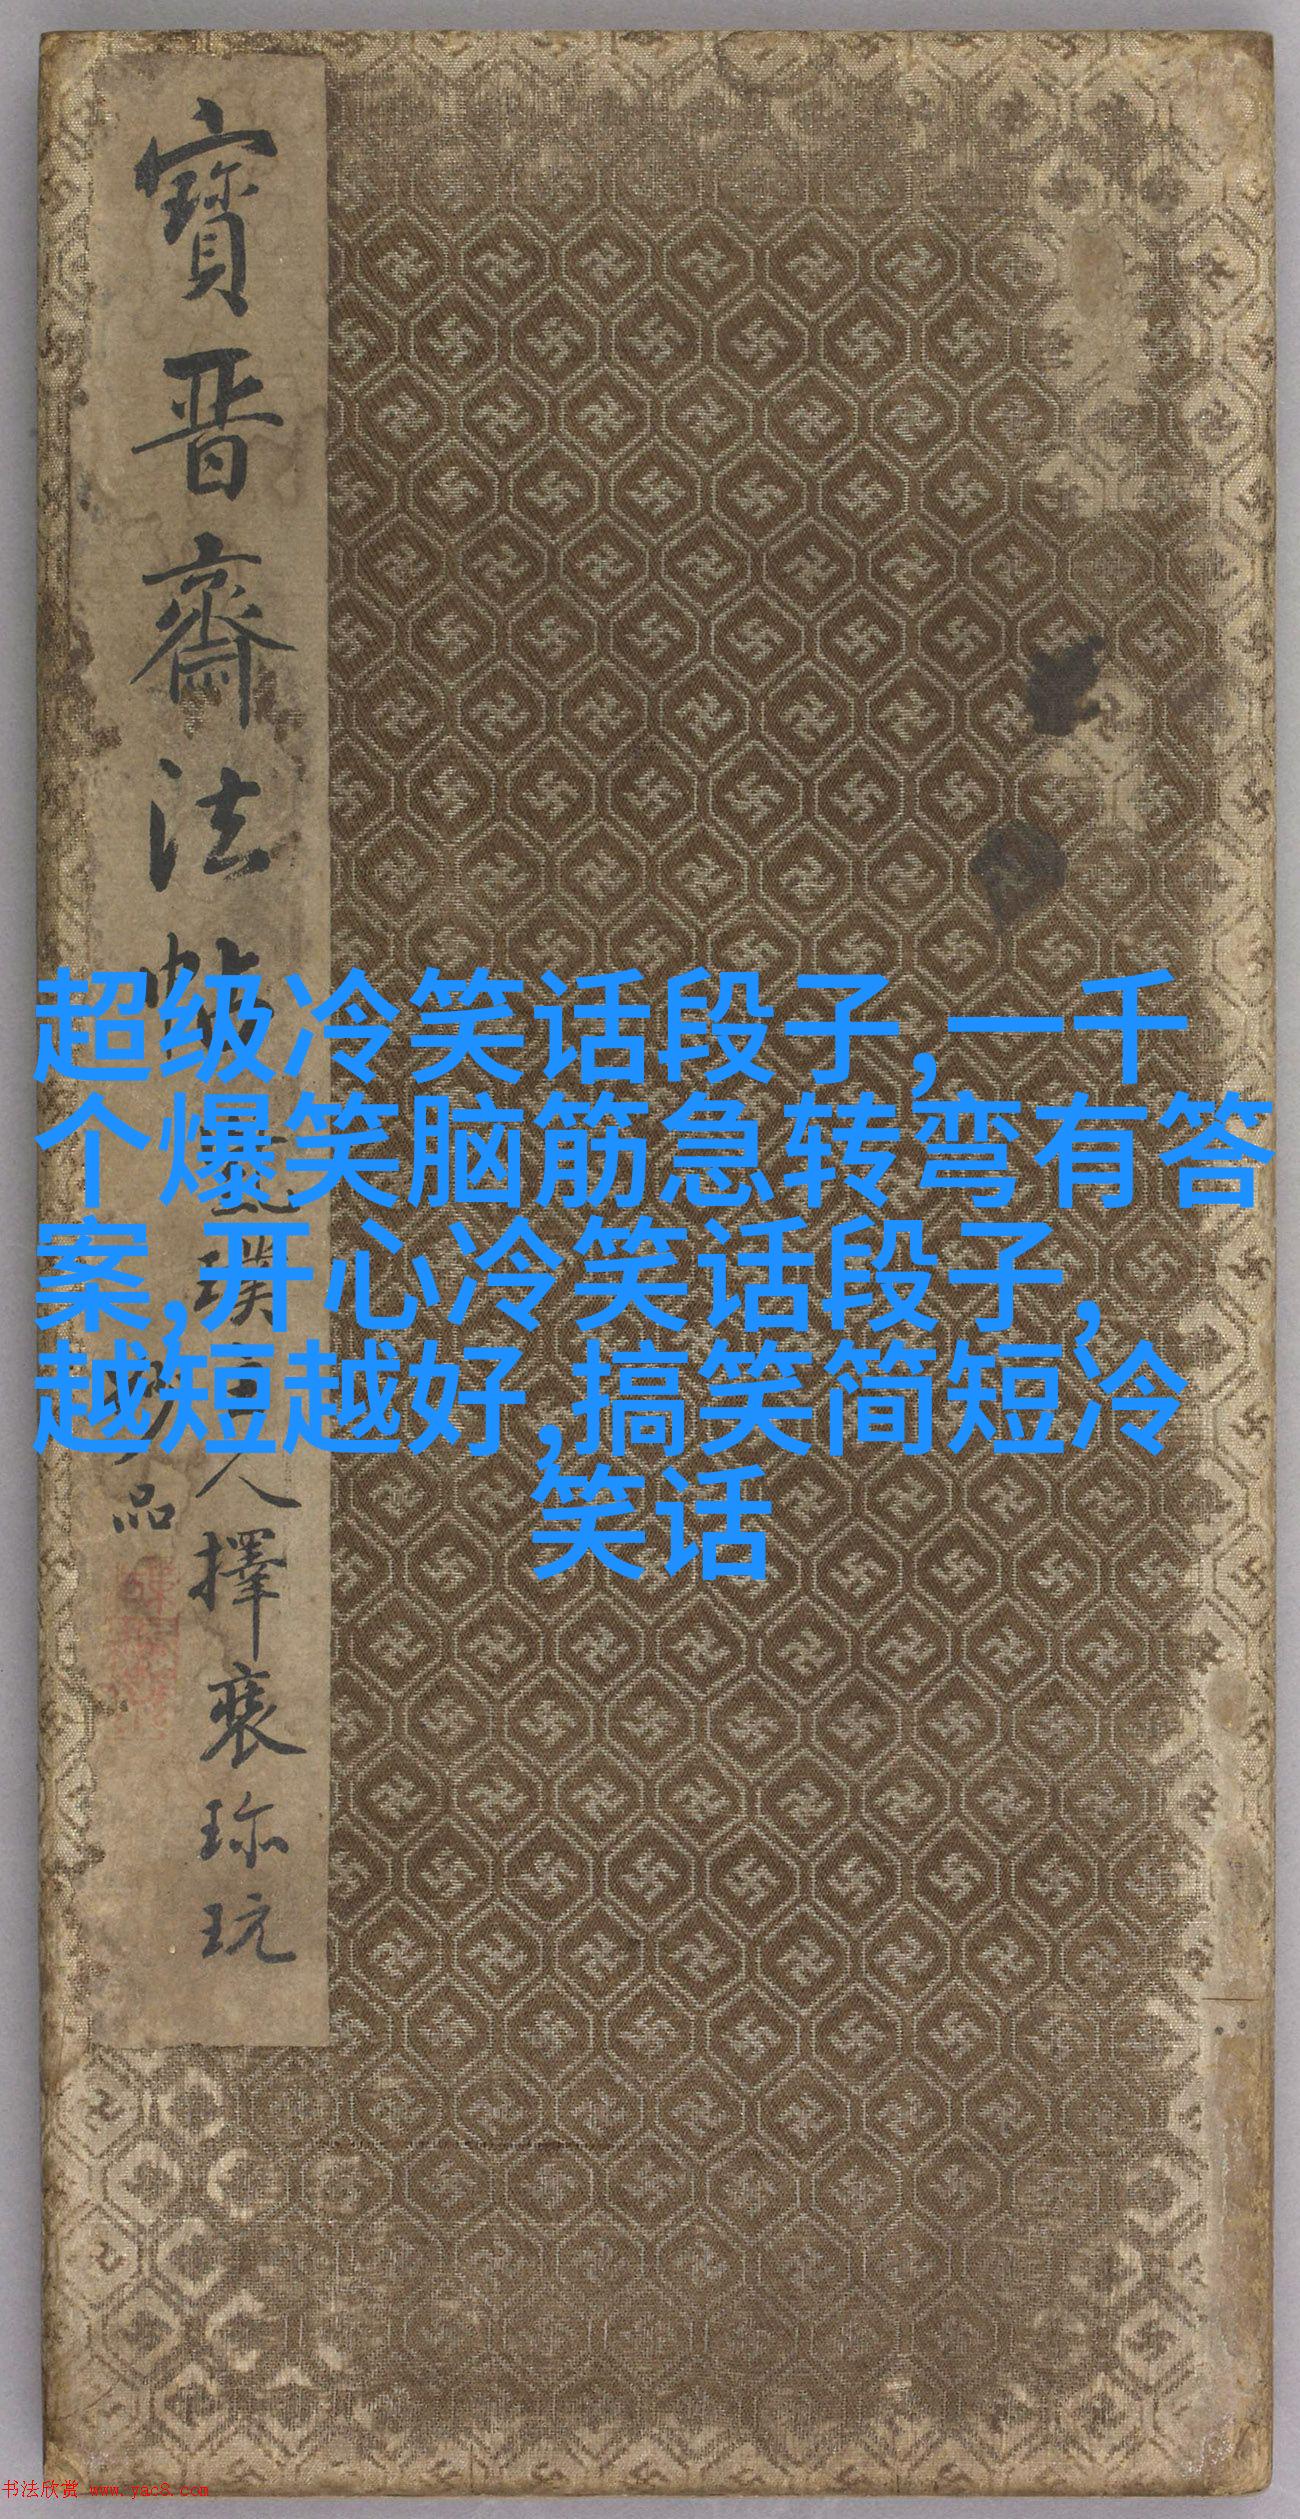 寶晋齋法帖
璞
人擇裘珎玩
品
超级冷笑话段子,一千
个爆笑脑筋急转弯有答
案,开心冷笑话段子,
越短越好,搞笑简短冷
笑话
书法欣赏 www.yac8.com